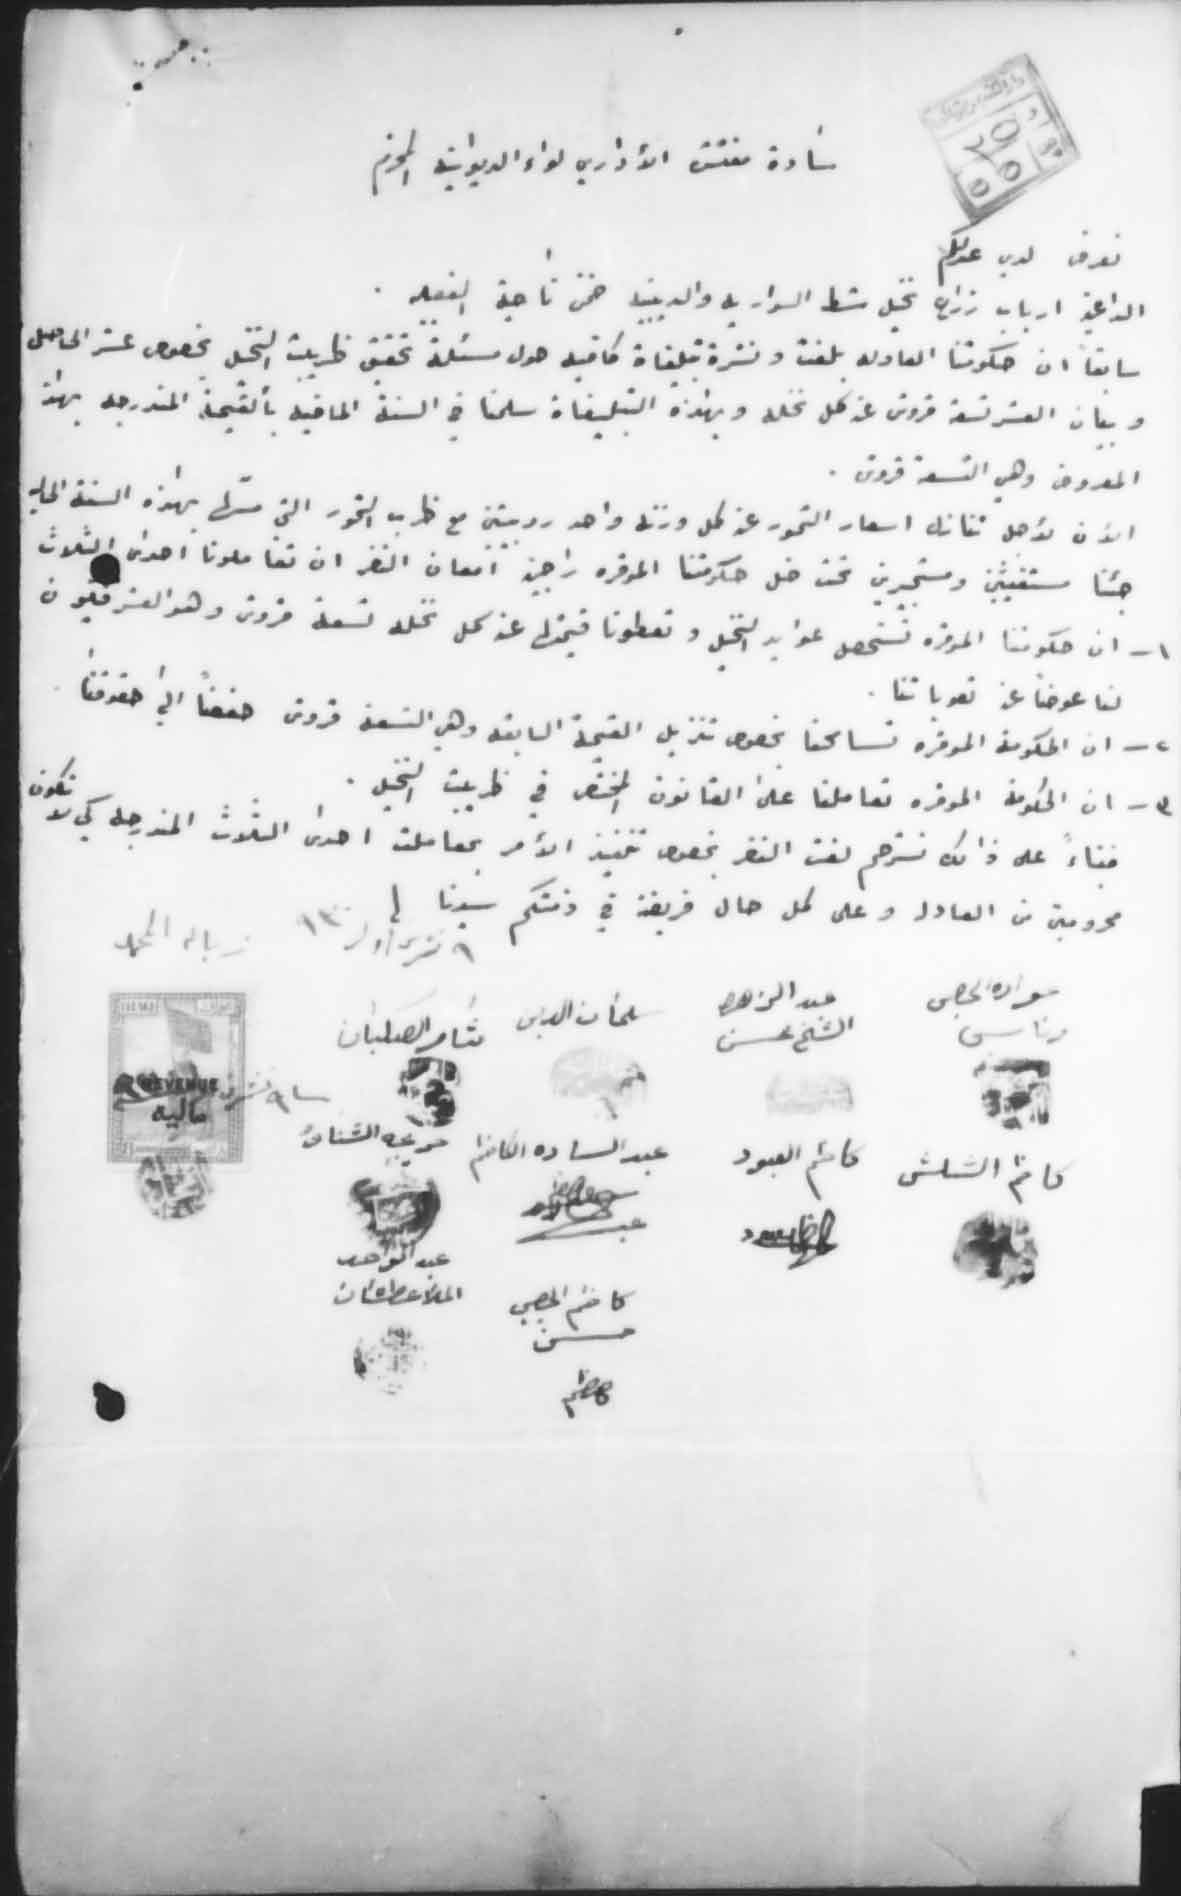 سأدة مفتش الأداري لواء الديوانية المحترم
نعرض لدى عدلكم
الداعين ارباب زراع نخيل شط السوارية والدبينية ضمن نأحية
سابقاً ان حكومتنا العادله بلغت ونشرة تبليغاة كافيه حول مسئلة تحقق ظريبت النخل بخصوص عشر الحاصل
وبيان العشر تسعة قروش عن كل نخله وبهاذه التبليغاة سلمنا في السنة الماضية بألقيمة المندرجه بهاذ
المعروض وهي التسعة قروش .
الأن لأجل تنازل اسعار التمور عن كل وزنه واحد روبيتين مع ظرب التمور التي مسّها بهاذه السنة الحاليه
جئنا مستغيثين ومستجيرين تحت ضل حكومتنا الموقره راجين امعان النضر ان تعاملونا احدى الثلاث
١ـ ان حكومتنا الموقره تستحصل عوايد النخيل وتعطونا قيمتها عن كل نخله تسعة قروش وهو العشر فيكون
لنا عوضاً عن تعوباتنا .
٢ـ ان الحكومة الموقره تسامحنا بخصوص تنزيل القيمة السابقه وهي التسعة قروش حفضاً الى حقوقنا .
٣ـ ان الحكومة الموقره تعاملنا على القانون المختص في ظريبت النخيل .
فبناءً على ذالك نسترحم لفت النضر بخصوص تنفيذ الأمر بمعاملت احدى الثلاث المندرجه كي لا نكون
محرومين من العادله وعلى كل حال فريضة في ذمتكم سيدنا
٩ تشرين اول ١٣
زباله المحمد
عبد الزهره
الشيخ محسن
سلمان
كاظم الشلش
كاظم العبود
عبد الساده الكاظم
عبد الواحد
كاظم
حسن
كاظم
REVENUE
مالية